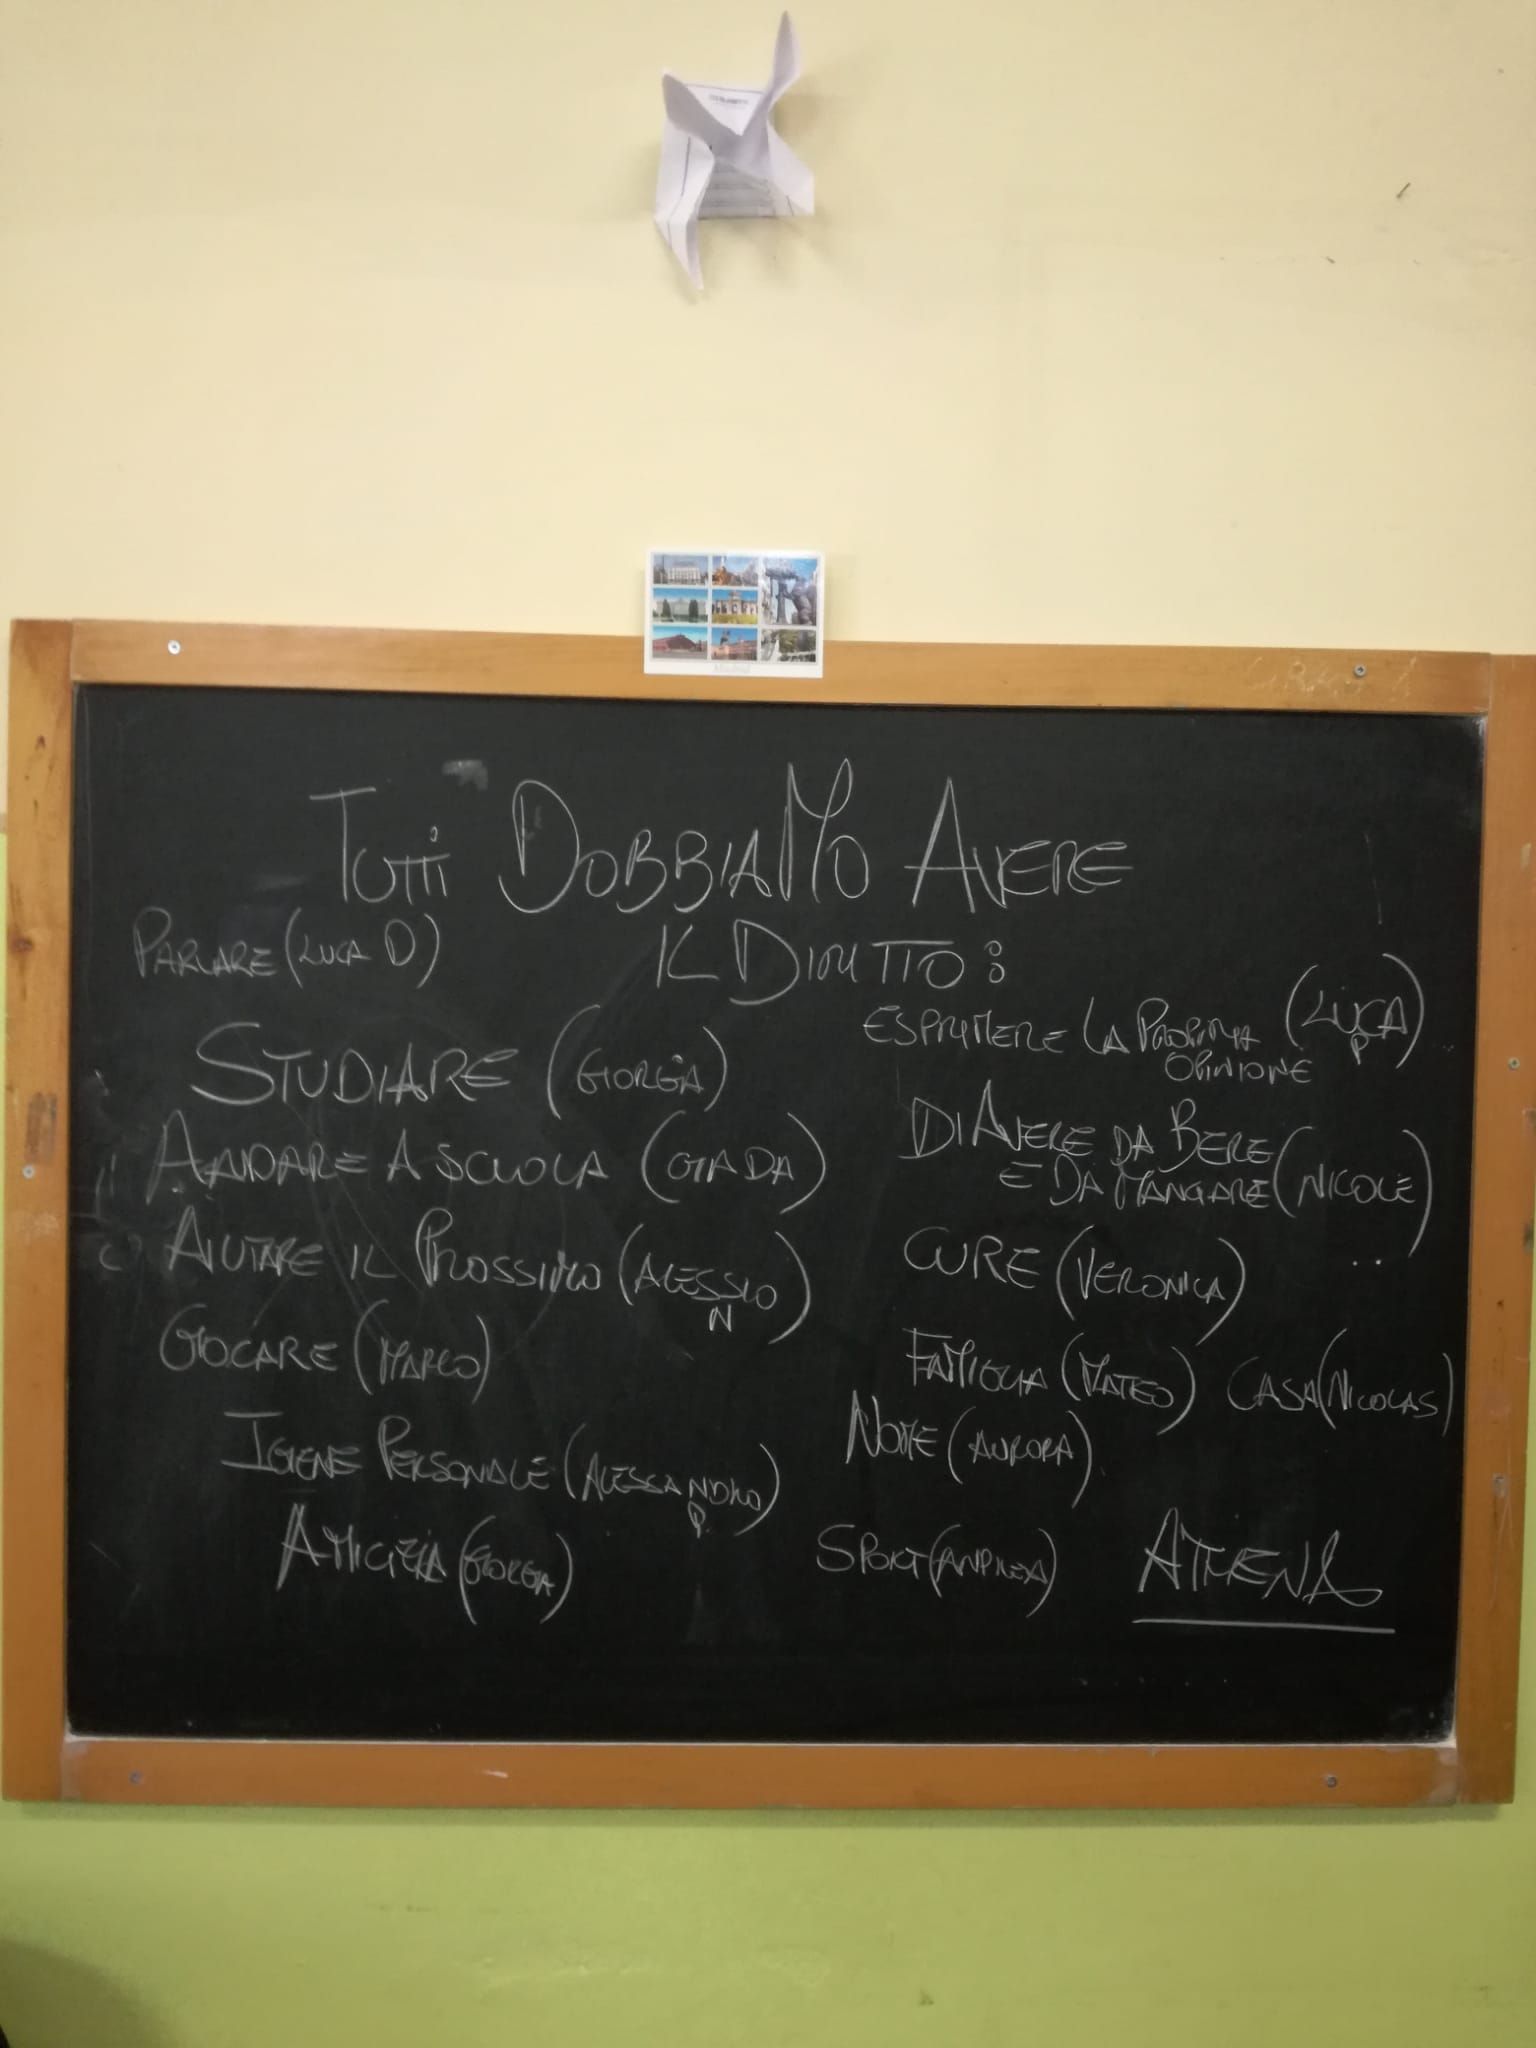 TUTTI DOBBIAMO AVERE
IL DIRITTO:
PARLARE (LUCA D)
STUDIARE (GIORGIA)
ANDARE A SCUOLA (GIADA)
AIUTARE IL PROSSIMO (ALESSIO
N)
GIOCARE (MARCO)
IGIENE PERSONALE (ALESSANDRO
P.)
AMICIZIA (GIORGIA)
ESPRIMERE LA PROPRIA (LUCA
OPINIONE P)
DI AVERE DA BERE
E DA MANGIARE (NICOLE)
CURE (VERONICA)
FAMIGLIA (MATEO) CASA (NICOLAS)
NOME (AURORA)
SPORT (ANDREA) ATHENA